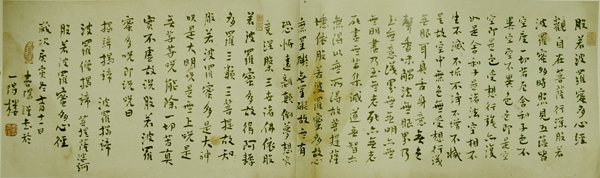 般若波羅蜜多心經
觀自在菩薩行深般若
波羅蜜多時照見五蘊皆
空度一切苦厄舍利子色不
異空空不異色色即是空
空即是色受想行識亦復
如是舍利子是諸法空相不
生不滅不垢不淨不增不減
是故空中無色無受想行識
無眼耳鼻舌身意無色
聲香味觸法無眼界乃
至無意識界無無明亦無
無明盡乃至無老死亦無老
死盡無苦集滅道無智亦
無得以無所得故菩提薩
埵依般若波羅蜜多故心
無罣礙無罣礙故無有
恐怖遠離顛倒夢想究
竟涅槃三世諸佛依般
若波羅蜜多故得阿耨
多羅三藐三菩提故知
般若波羅蜜多是大神
咒是大明咒是無上咒是
無等等咒能除一切苦真
實不虛故說般若波羅
蜜多咒即說咒曰
揭諦揭諦 波羅揭諦
波羅僧揭諦 菩提薩婆訶
般若波羅蜜多心經
歲次庚寅六月十二日